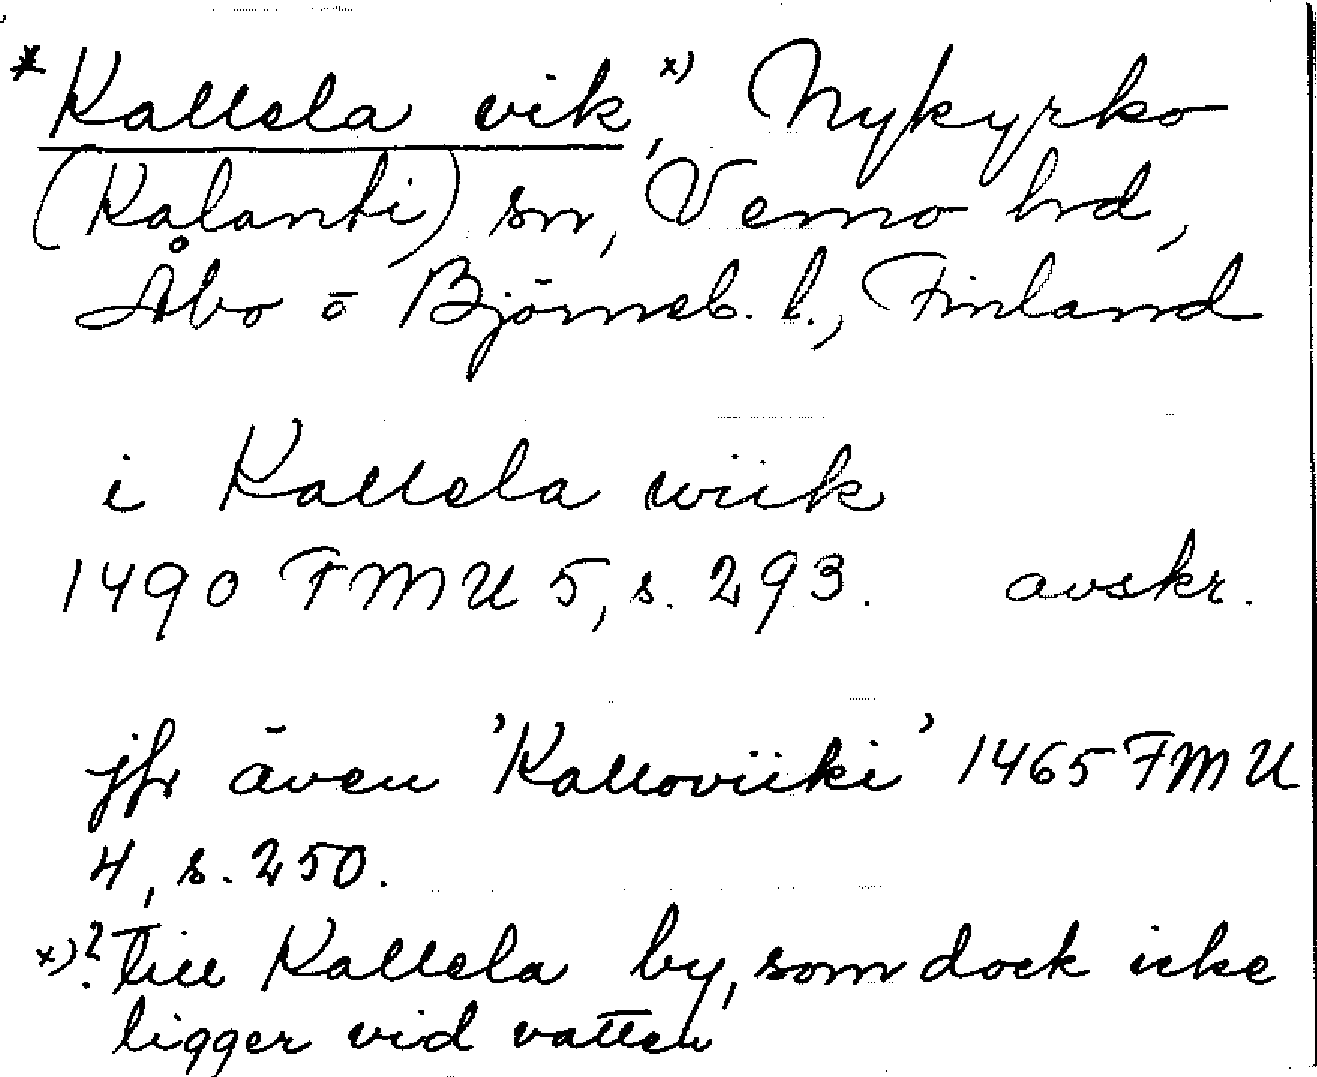 *Kallela vik, x) Nykyrko
(Kalanti) sn, Vemo hrd,
Åbo o Björneb. l., Finland
i Kallela wiik
1490 FMU 5, s. 293. avskr.
jfr även 'Kalloviiki' 1465 FMU
4, s. 250.
x)? Till Kallela by, som dock icke
ligger vid vatten